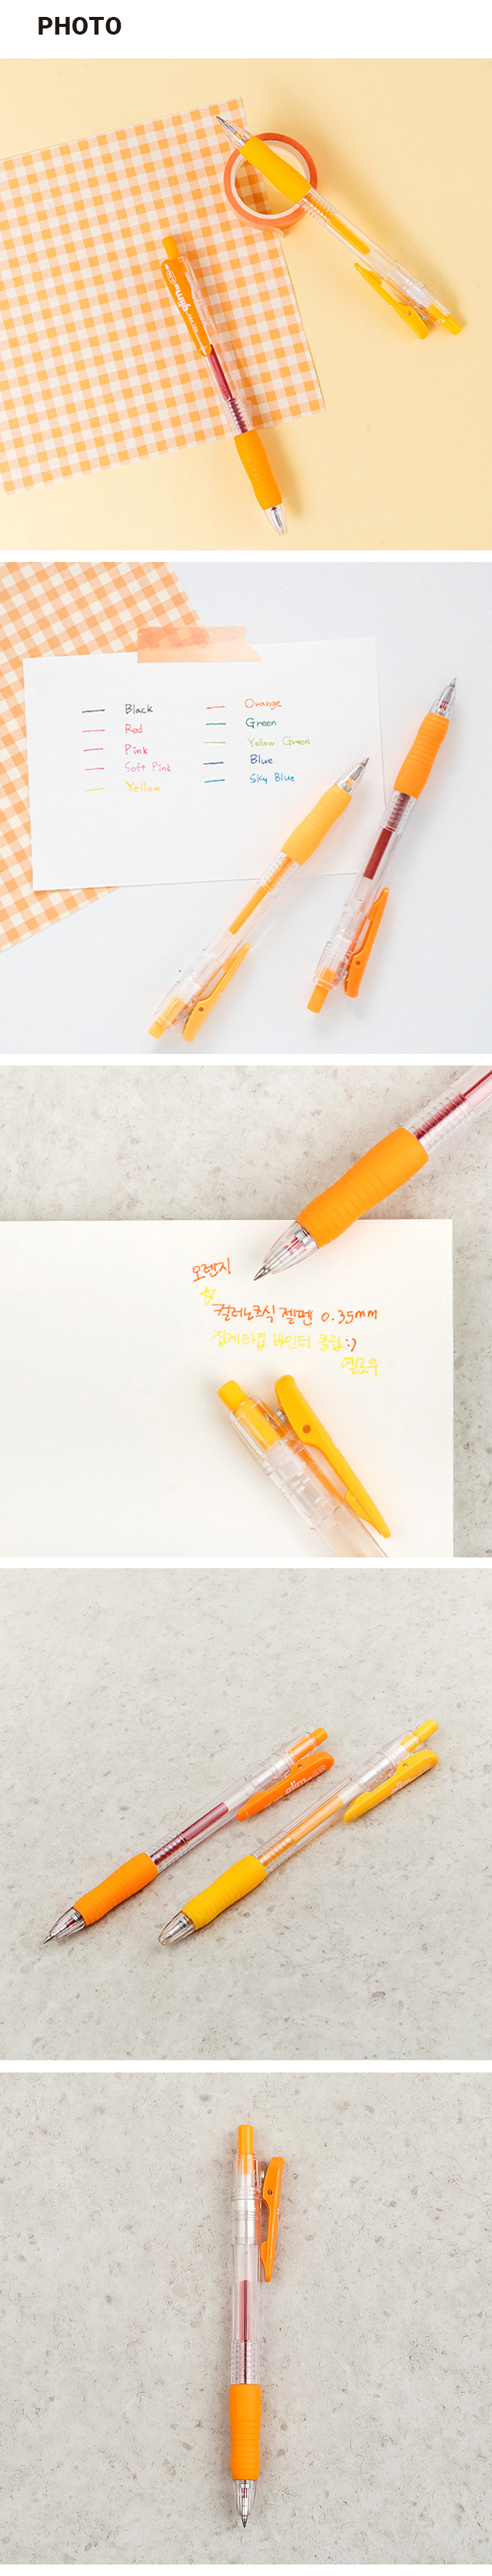 PHOTO
glim
Black
Red
Pink
Soft Pink
Yellow
Orange
Green
Yellow Green
Blue
Sky Blue
오렌지
컬러노크식 젤펜 0.35mm
집게타입 바인더 클립:)
옐로우
glim
glim